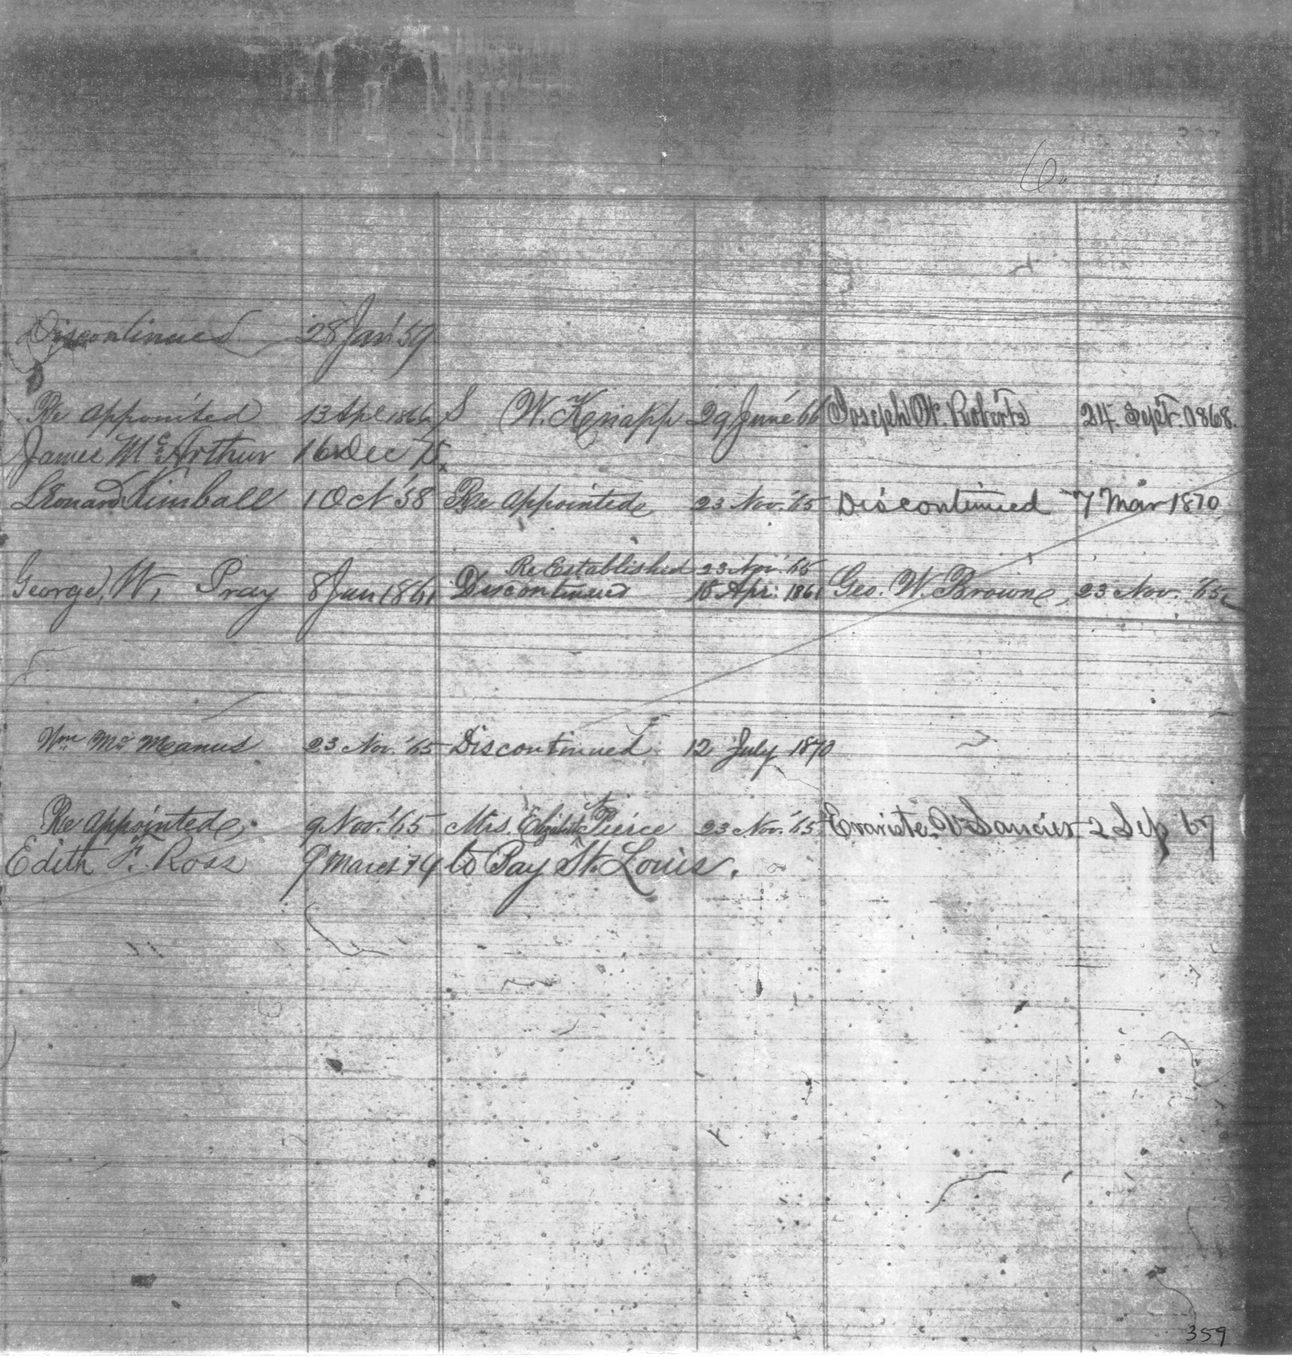 6.
Discontinued 28 Jan '59
Re appointed 13 Apl 1866 S W. Knapp 29 June 66 Joseph W. Roberts 24. Sept. 1868.
James Mc Arthur 16 Dec 75
Leonard Kimball 1 Oct '58 Re Appointed 23 Nov. '65 Discontinued 7 Mar 1870
Re Established 23 Nov. '65
George, W, Pray 8 Jun 1861 Discontinued 18 Apr: 1861 Geo. W. Browne, 23 Nov. '65
Wm Mc Manus 23 Nov. '65 Discontinued 12 July 1870
Re Appointed, 9 Nov. '65 Mrs. Elizabeth Pierce 23 Nov. '65 Evariste V Saucier 2 Sep 67
Edith F. Ross 9 March 74 to Bay St. Louis.
359